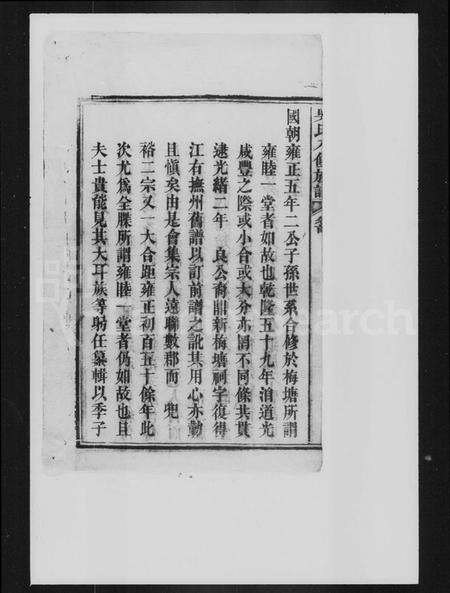 國朝雍正五年二公子孫世系合修於梅塘所謂
雍睦一堂者如故也乾隆五十九年洎道光
咸豐之際或小合或大分亦罔不同條共貫
逮光緒二年 良公裔鼎新梅塘祠宇復得
江右撫州舊譜以訂前譜之訛其用心亦勤
且愼矣由是會集宗人遠聯數郡而 兜
裕二宗又一大合距雍正初百五十餘年此
次尤爲全牒所謂雍睦一堂者仍如故也且
夫士貴能見其大耳族等躬任纂輯以季子